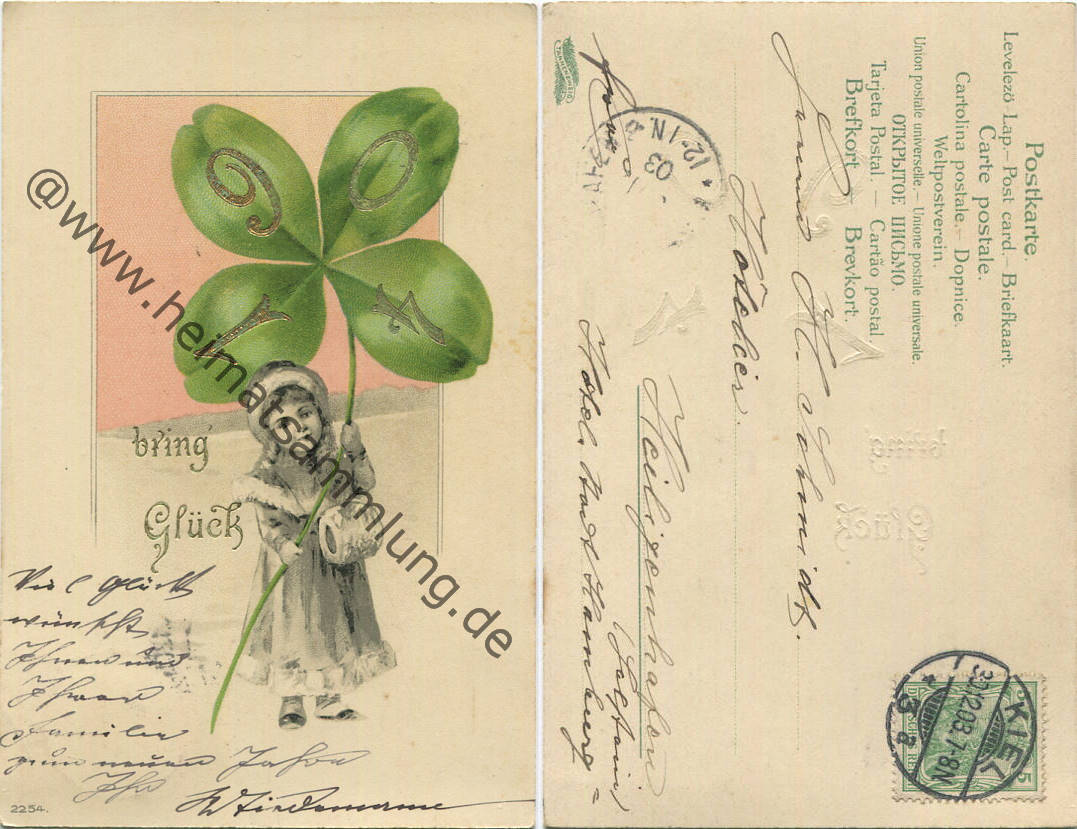 9 0
1 4
bring
Glück
Viel Glück
wünscht
Ihnen und
Ihrer
Familie
zum neuen Jahre
Ihr
2254.
@www.heimatsammlung.de
Postkarte.
Carte postale.
Levelező-Lap.–Post card.–Briefkaart.
Cartolina postale.–Dopnice.
Weltpostverein.
Union postale universelle.–Unione postale universale.
ОТКРЫТОЕ ПИСЬМО.
Tarjeta Postal. – Cartão postal.
Brefkort – Brevkort.
H. Schmidt.
Hôtelier.
Heiligenhafen
Holstein
Hotel Stadt Hamburg
TANNENZWEIG
KIEL
30.12.03.7-8N
* 3a
5
12-1N.
03